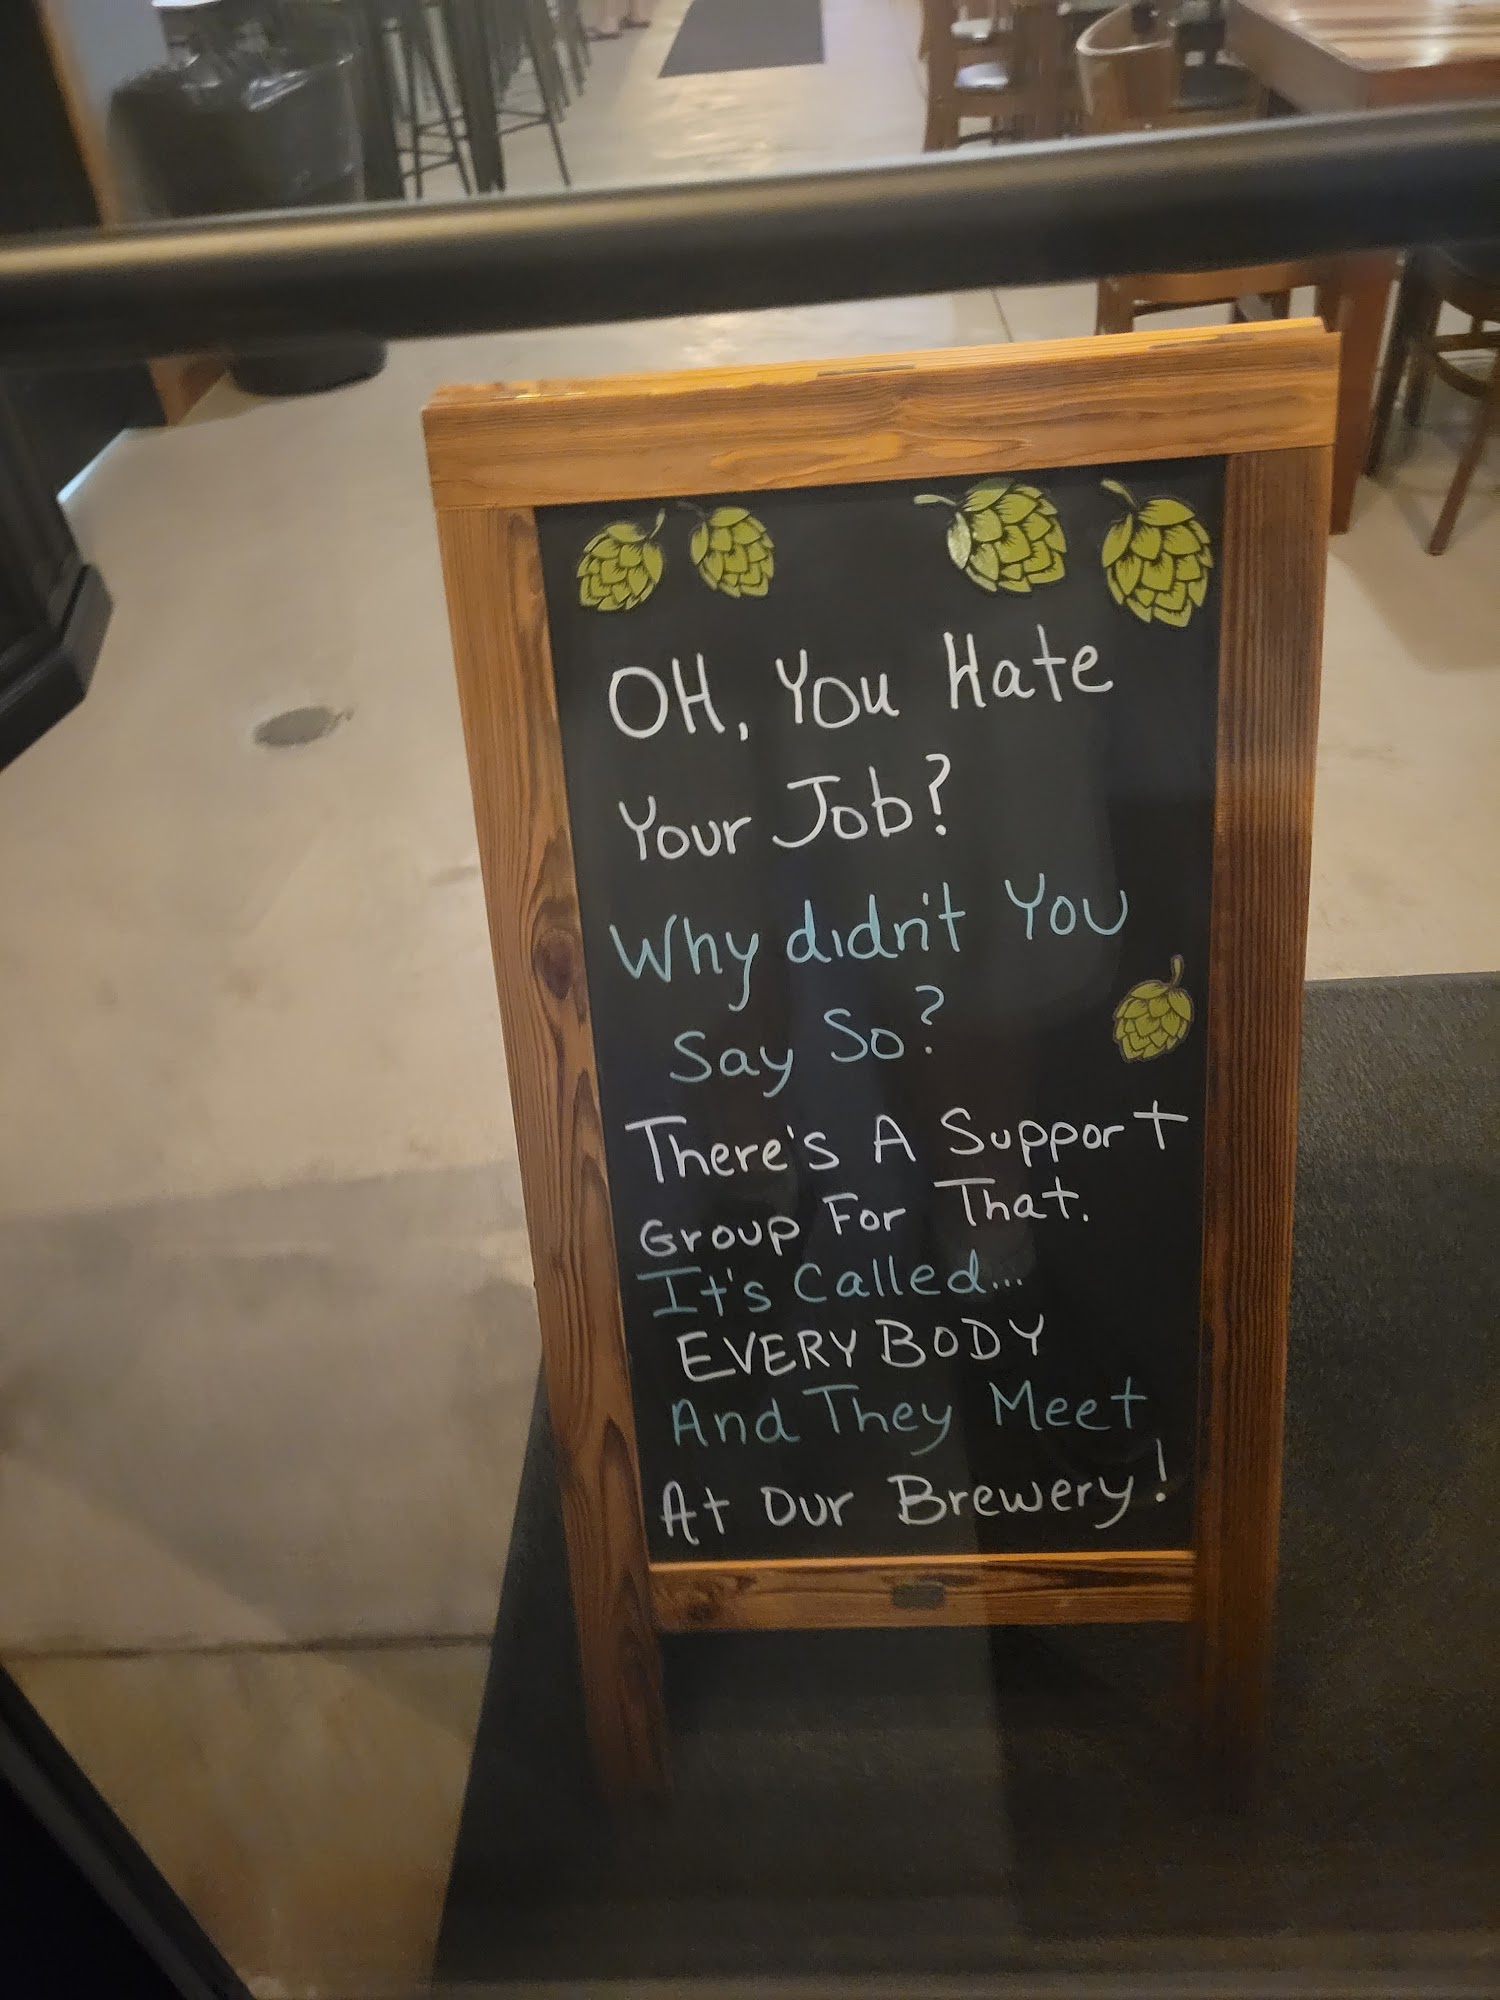 OH, You Hate
Your Job?
Why didn't You
Say So?
There's A Support
Group For That.
It's Called...
EVERYBODY
And They Meet
At Our Brewery!